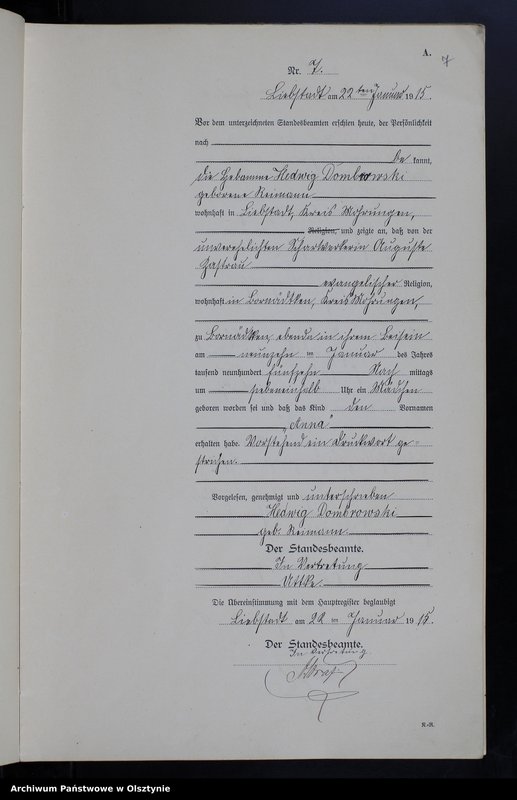 A.
7
Nr. 7.
Liebstadt am 22ten Januar 1915.
Vor dem unterzeichneten Standesbeamten erschien heute, der Persönlichkeit
nach
be kannt,
die Hebamme Hedwig Dombrowski
geborene Reimann
wohnhaft in Liebstadt, Kreis Mohrungen,
Religion, und zeigte an, daß von der
unverehelichten Scharwerkerin Auguste
evangelischer Religion,
wohnhaft in Bornädtken, Kreis Mohrungen,
zu Bornädtken, ebenda in ihrem Beisein
am neunzehn ten Januar des Jahres
tausend neunhundert fünfzehn Nach mittags
um siebeneinhalb Uhr ein Mädchen
geboren worden sei und daß das Kind den Vornamen
„Anna"
erhalten habe. Vorstehend ein Druckwort ge-
strichen.
Vorgelesen, genehmigt und unterschrieben
Hedwig Dombrowski
geb. Reimann
Der Standesbeamte.
In Vertretung
Uttke
Die Übereinstimmung mit dem Hauptregister beglaubigt
Liebstadt am 22 ten Januar 1915.
Der Standesbeamte.
In Vertretung.
Archiwum Państwowe w Olsztynie